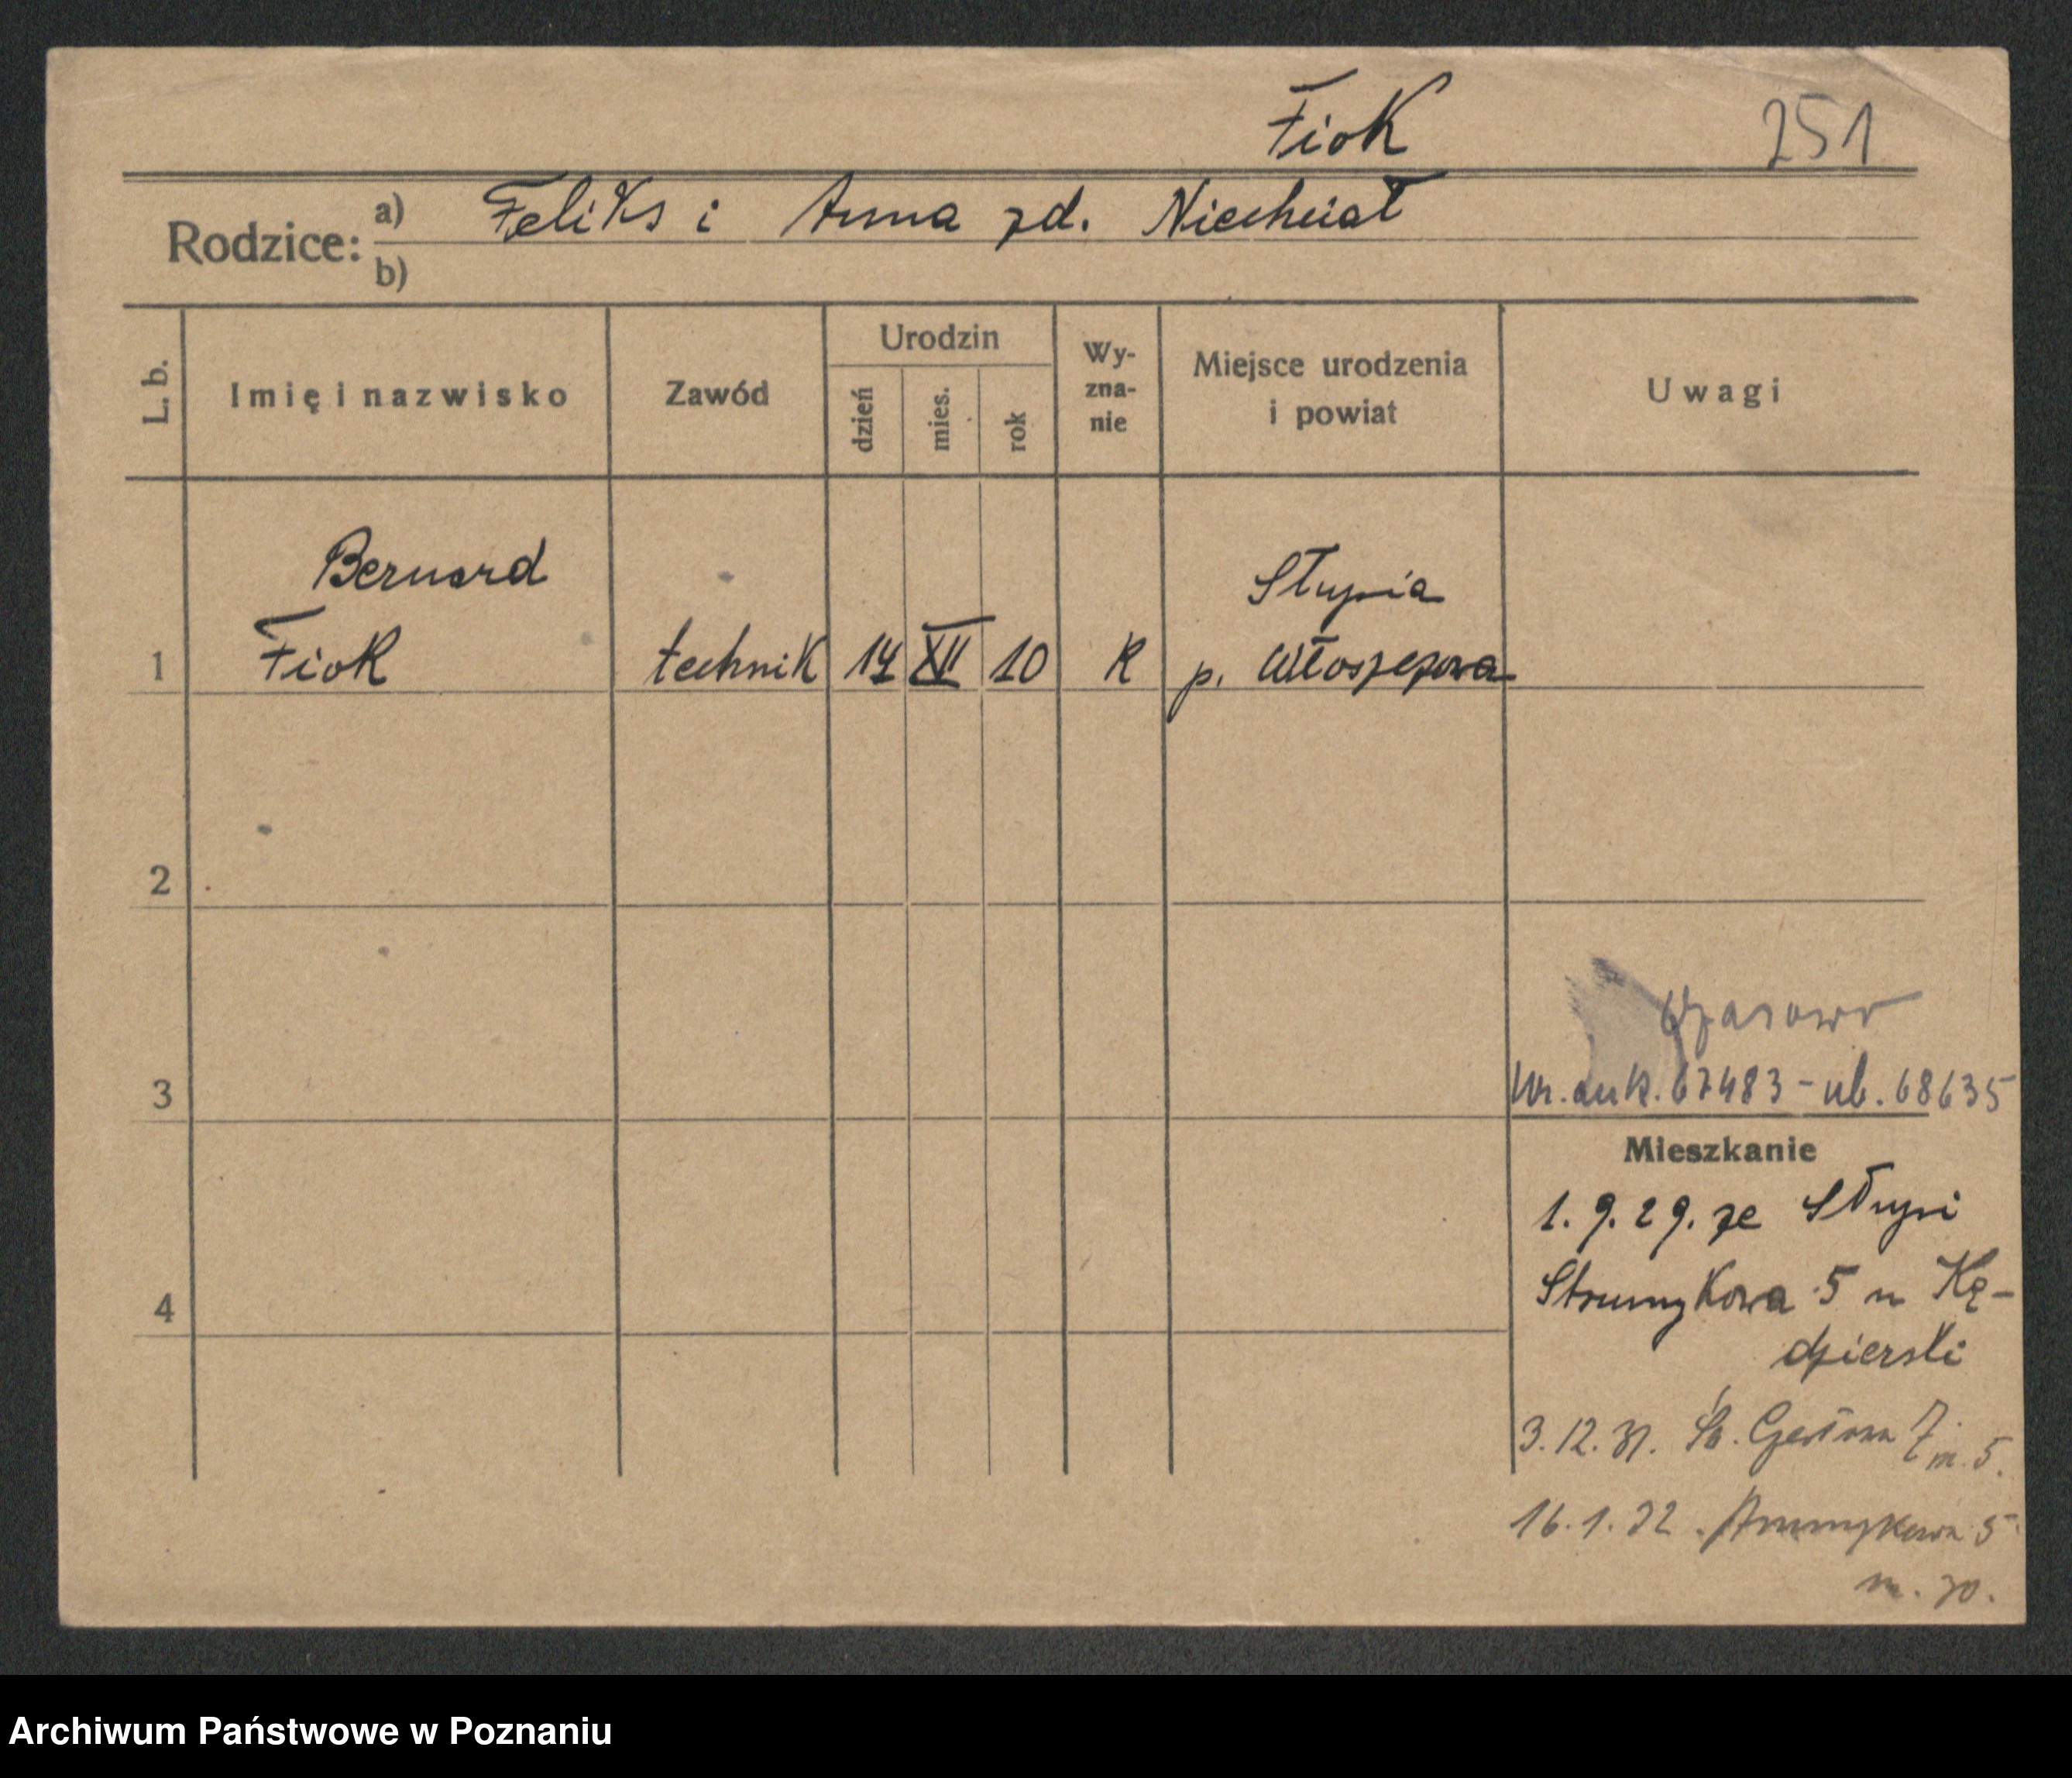 Fiok 251
Rodzice: a) Feliks i Anna zd. Niechciał
b)
L. b. Imię i nazwisko Zawód Urodzin dzień mies. rok Wy-zna-nie Miejsce urodzenia i powiat Uwagi
Bernard Słupia
1 Fiok technik 14 XII 10 K p. Włoszczowa
2
czasowo
3 Nr. ank. 67483 - ub. 68635
Mieszkanie
1. 9. 29. ze Słupi
4 Strumykowa 5 u Kę-
dzierski
3. 12. 31. 7 m. 5.
16. 1. 32. Strumykowa 5
m.
Archiwum Państwowe w Poznaniu